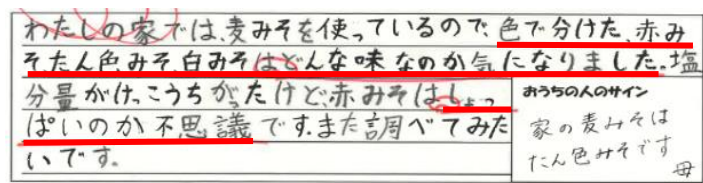 わたしの家では、麦みそを使っているので、色で分けた、赤み
そ、たん色みそ、白みそはどんな味なのか気になりました。塩
分量がけっこうちがったけど、赤みそはしょっ
ぱいのか不思議です。また調べてみた
いです。
おうちの人のサイン
家の麦みそは
たん色みそです
母